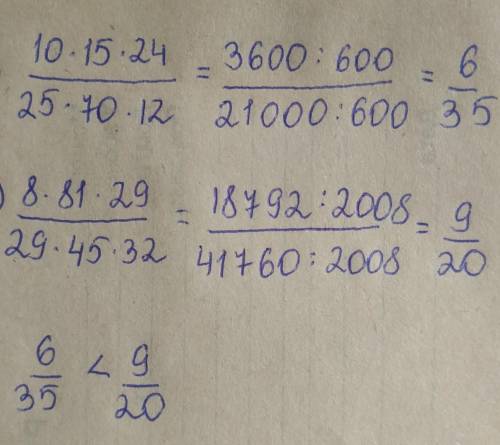 10·15·24 / 25·70·12 = 3600:600 / 21000:600 = 6/35
) 8·81·29 / 29·45·32 = 18792:2008 / 41760:2008 = 9/20
6/35 < 9/20